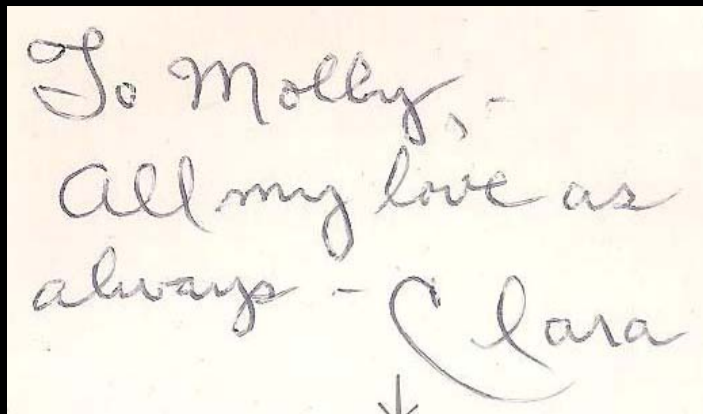 To Molly, -
All my love as
always - Clara